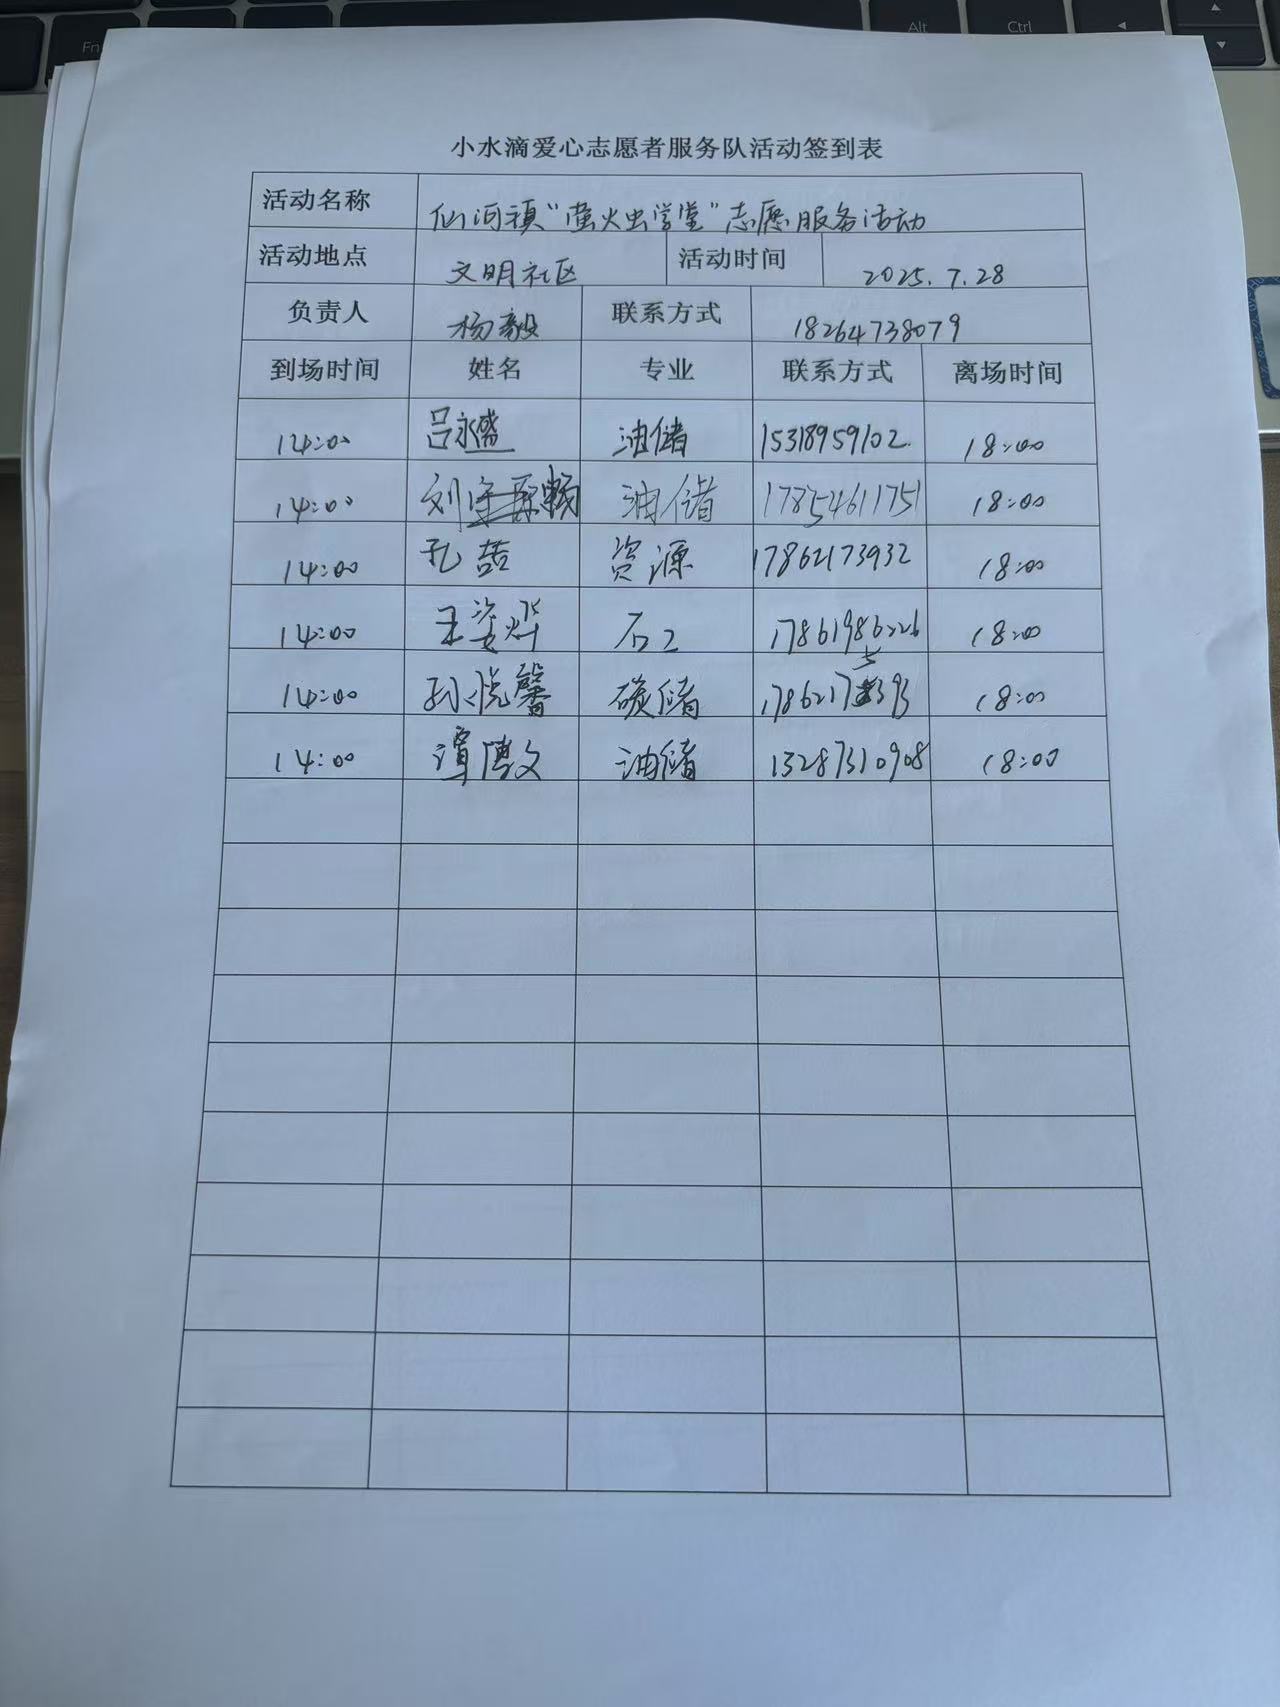 Fn
Alt
Ctrl
小水滴爱心志愿者服务队活动签到表
活动名称 仙河镇"萤火虫学堂"志愿服务活动
活动地点 文明社区 活动时间 2025.7.28
负责人 杨毅 联系方式 18264738079
到场时间 姓名 专业 联系方式 离场时间
14:00 吕永盛 油储 15318959102 18:00
14:00 刘 畅 油储 17854611751 18:00
14:00 孔喆 资源 17862173932 18:00
14:00 王姿烨 石工 17861986226 18:00
14:00 孙悦馨 碳储 18:00
14:00 谭博文 油储 13287310908 18:00